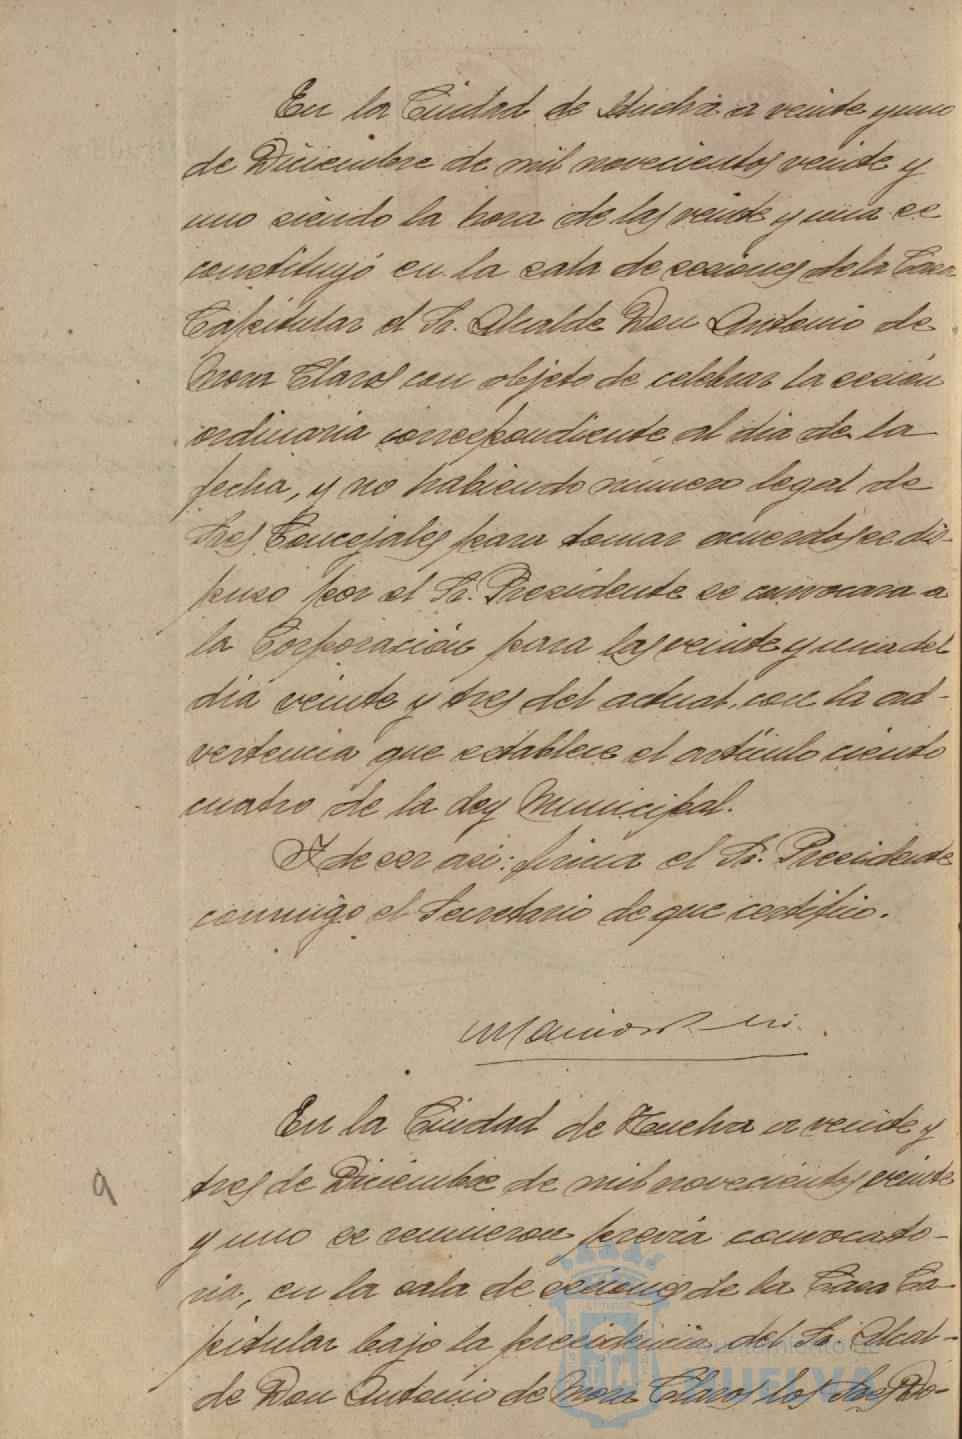 En la Ciudad de Huelva a veinte y uno
de Diciembre de mil novecientos veinte y
uno siendo la hora de las veinte y una se
constituyó en la sala de sesiones de la Casa
Capitular el Sr. Alcalde Don Antonio de
Mora Claros con objeto de celebrar la sesión
ordinaria correspondiente al dia de la
fecha, y no habiendo número legal de
Sres Concejales para tomar acuerdos se dis-
puso por el Sr. Presidente se convocara a
la Corporación para las veinte y una del
dia veinte y tres del actual, con la ad-
vertencia que establece el artículo ciento
cuatro de la Ley Municipal.
Y de ser asi: firma el Sr. Presidente
conmigo el Secretario de que certifico.
En la Ciudad de Huelva a veinte y
9
tres de Diciembre de mil novecientos veinte
y uno se reunieron previa convocato-
ria, en la sala de sesiones de la Casa Ca-
pitular bajo la presidencia del Sr. Alcal-
de Don Antonio de Mora Claros los Sres Do-
Ayuntamiento de
HUELVA